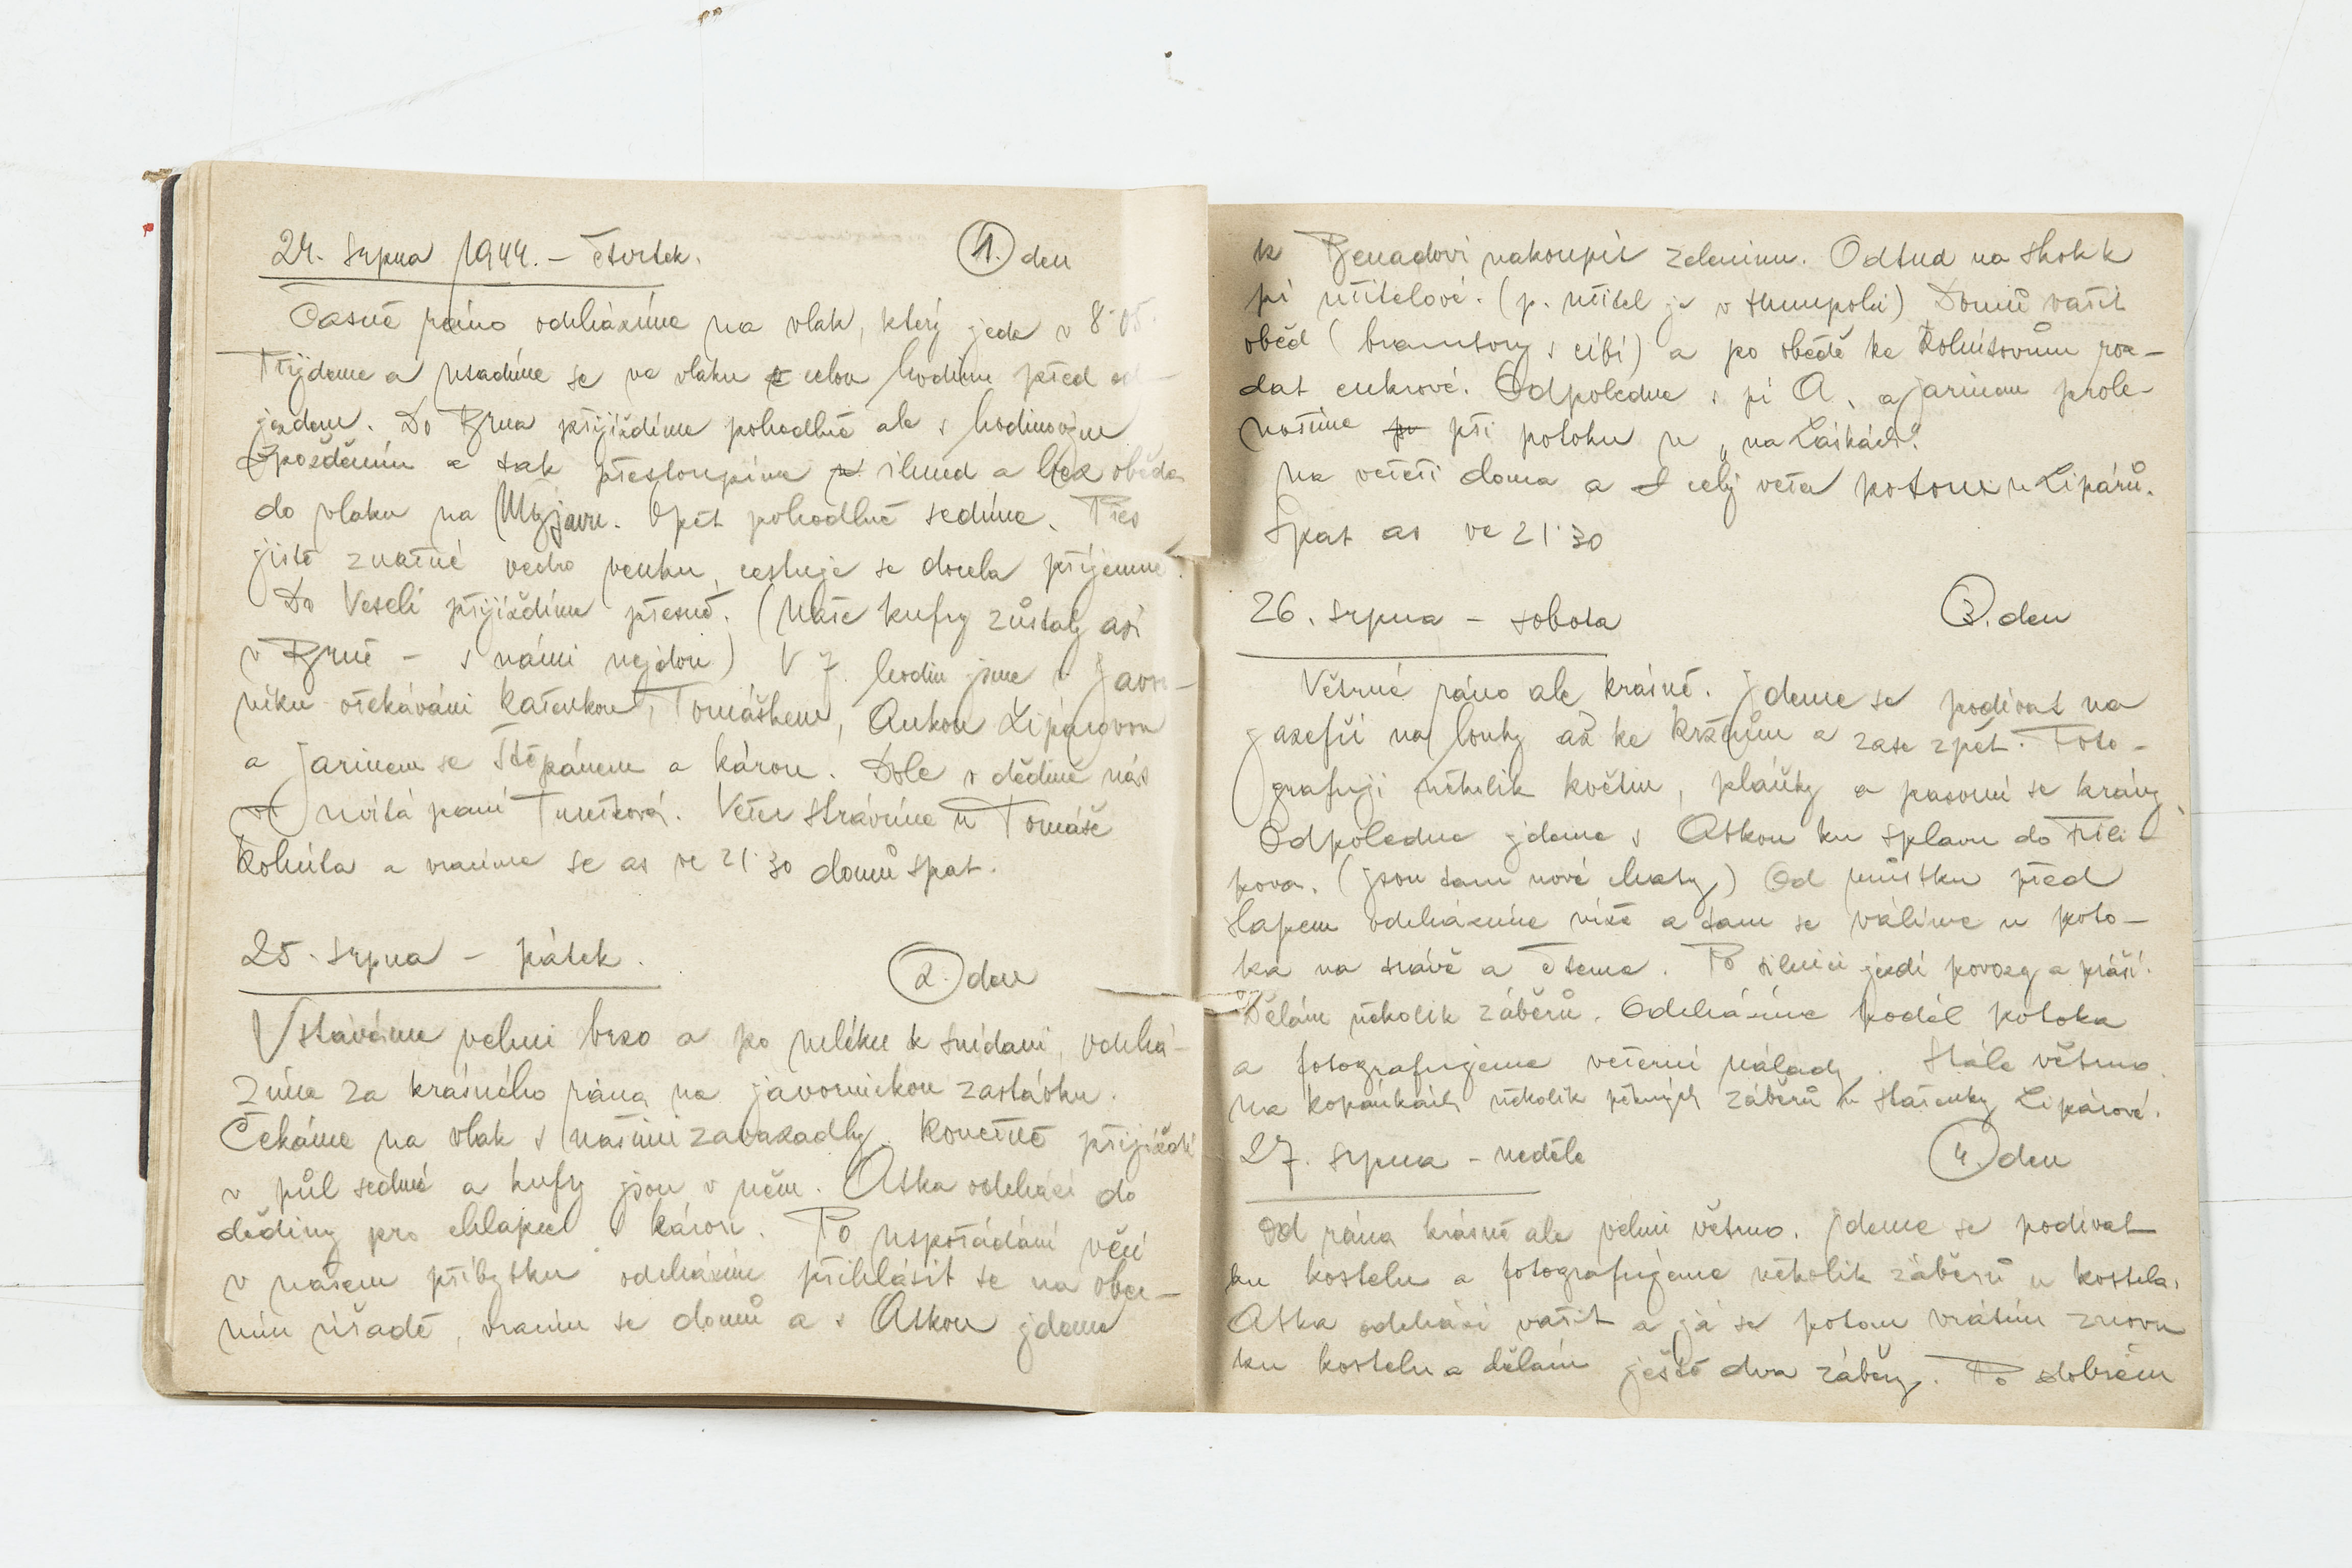 24. srpna 1944. – čtvrtek. 1. den
Časně ráno odcházíme na vlak, který jede v 8˙05.
Přijdeme a usadíme se ve vlaku celou hodinu před od-
jezdem. Do Brna přijíždíme pohodlně ale s hodinovým
zpožděním a tak přestoupíme ihned a bez oběda
do vlaku na Myjavu. Opět pohodlně sedíme. Přes
jistě značné vedro venku, cestuje se docela příjemně.
Do Veselí přijíždíme přesně. (Naše kufry zůstaly asi
v Brně – s námi nejdou) V 7 hodin jsme v Javor-
níku očekáváni Kačenkou, Tomáškem, Ankou Lipárovou
a Jarinem se Štěpánem a károu. Dole v dědině nás
uvítá paní. Večer strávíme u Tomáše
Kohúta a vracíme se as ve 21˙30 domů spat.
25. srpna – pátek.
2. den
Vstáváme velmi brzo a po mléku k snídani, odchá-
zíme za krásného rána na javornickou zastávku.
Čekáme na vlak s našimi zavazadly. Konečně přijíždí
v půl sedmé a kufry jsou v něm. Atka odchází do
dědiny pro chlapce s károu. Po uspořádání věcí
v našem příbytku odcházím přihlásit se na obec-
ním úřadě, vracím se domů a s Atkou jdeme
k Benadovi nakoupit zeleninu. Odtud na skok k
pí učitelové. (p. učitel je v Humpolci) Domů vařit
oběd (brambory s cibí) a po obědě ke Kohútovům roz-
dat cukroví. Odpoledne s pí A. a Jarinem prole-
nošíme při potoku u „na Láskách“.
Na večeři doma a celý večer potom u Lipárů.
Spat as ve 21˙30
26. srpna – sobota 3. den
Větrné ráno ale krásné. Jdeme se podívat na
jazefií na louky až ke Kržňům a zase zpět. Foto-
grafuji několik květin, pláňky a pasoucí se krávy.
Odpoledne jdeme s Atkou ku splavu do Fili-
pova. (jsou tam nové chaty) Od můstku před
slapem odcházíme výše a tam se válíme u poto-
ka na trávě a čteme. Po silnici jezdí povozy a práší.
Dělám několik záběrů. Odcházíme podél potoka
a fotografujeme večerní nálady. Stále větrno.
Na kopánkách několik pěkných záběrů u stařenky Lipárové.
27. srpna – neděle 4. den
Od rána krásně ale velmi větrno. Jdeme se podívat
ku kostelu a fotografujeme několik záběrů u kostela.
Atka odchází vařit a já se potom vrátím znovu
ku kostelu a dělám ještě dva záběry. Po dobrém